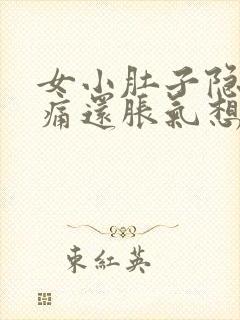 女小肚子隐
痛還脹氣想
東紅英